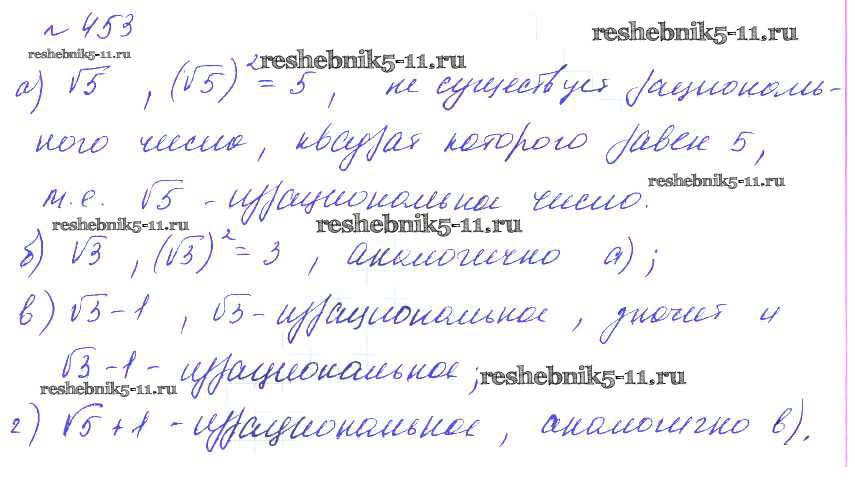 № 453
reshebnik5-11.ru
reshebnik5-11.ru
reshebnik5-11.ru
а) √5 , (√5)² = 5 , не существует рациональ-
ного числа, квадрат которого равен 5,
reshebnik5-11.ru
т.е. √5 - иррациональное число.
reshebnik5-11.ru
reshebnik5-11.ru
б) √3 , (√3)² = 3 , аналогично а) ;
в) √3 - 1 , √3 - иррациональное , значит и
√3 - 1 - иррациональное ;
reshebnik5-11.ru
reshebnik5-11.ru
г) √5 + 1 - иррациональное , аналогично в).